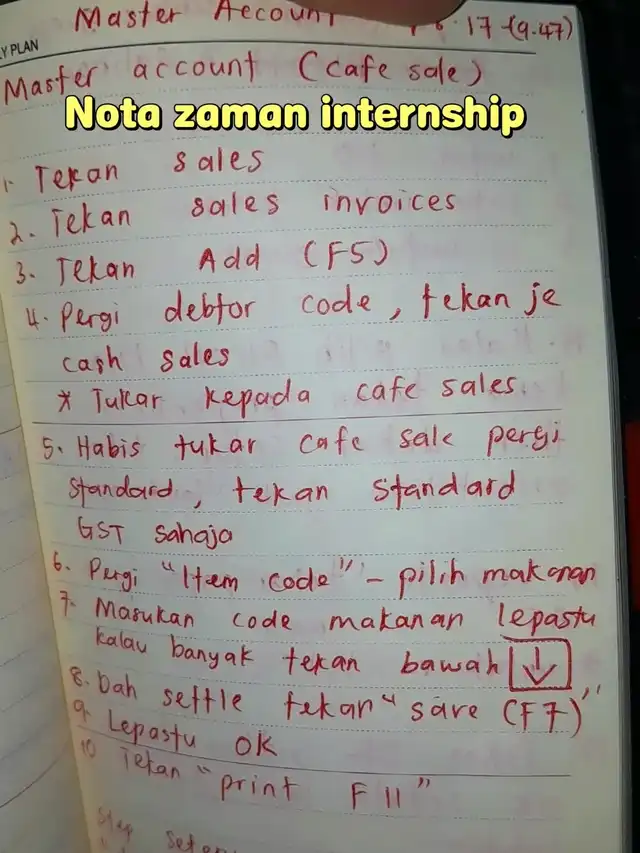 Master Account 17 (9.47)
Y PLAN
Master account (cafe sale)
Nota zaman internship
1. Tekan sales
2. Tekan sales invoices
3. Tekan Add (F5)
4. Pergi debtor code, tekan je
cash sales
* Tukar kepada cafe sales.
5. Habis tukar cafe sale pergi
standard, tekan standard
GST sahaja
6. Pergi "Item code" - pilih makanan
7. Masukan code makanan lepastu
kalau banyak tekan bawah ↓
8. Dah settle tekan "save (F7)"
9. Lepastu OK
10 Tekan "print F11"
Step